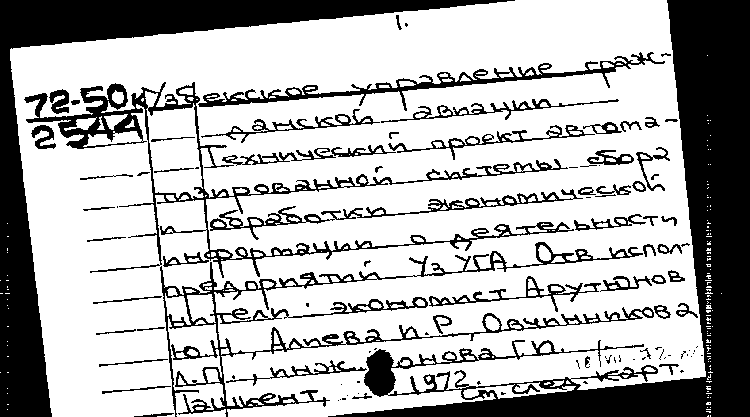 1.
72-50к Узбекское управление граж-
2544 данской авиации.
Технический проект автома-
тизированной системы сбора
и обработки экономической
информации о деятельности
предприятий УзУГА. Отв. испол-
нители: экономист Арутюнов
Ю.Н., Алиева И.Р., Овчинникова
Л.П., инж. Г.П.
Ташкент, 1972. 18/VII-72
См. след. карт.